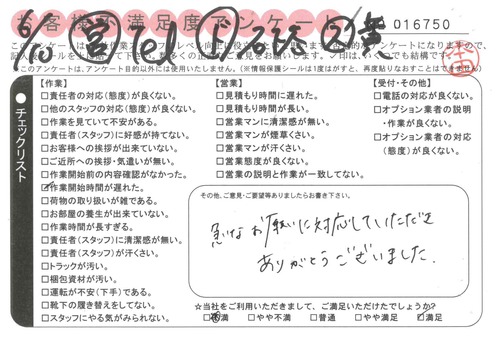 お客様不満足度アンケート
016750
6/10 Tel
【作業】
□責任者の対応(態度)が良くない。
□他のスタッフの対応(態度)が良くない。
□作業を見ていて不安がある。
□責任者(スタッフ)に好感が持てない。
□お客様への挨拶が出来ていない。
□ご近所への挨拶・気遣いが無い。
□作業開始前の内容確認がなかった。
☑作業開始時間が遅れた。
□荷物の取り扱いが雑である。
□お部屋の養生が出来ていない。
□作業時間が長すぎる。
□責任者(スタッフ)に清潔感が無い。
□責任者(スタッフ)が汗くさい。
□トラックが汚い。
□梱包資材が汚い。
□運転が不安(下手)である。
□靴下の履き替えをしてない。
□スタッフにやる気がみられない。
【営業】
□見積もり時間に遅れた。
□見積もり時間が長い。
□営業マンに清潔感が無い。
□営業マンが煙草くさい。
□営業マンが汗くさい。
□営業態度が良くない。
□営業の説明と作業が一致してない。
【受付・その他】
□電話の対応が良くない。
□オプション業者の説明
・作業が良くない。
□オプション業者の対応
(態度)が良くない。
チェックリスト
その他、ご意見・ご要望等ありましたらお書き下さい。
急なお願いに対応していただき
ありがとうございました。
☆当社をご利用いただきまして、ご満足いただけたでしょうか?
□不満 □やや不満 □普通 □やや満足 □満足